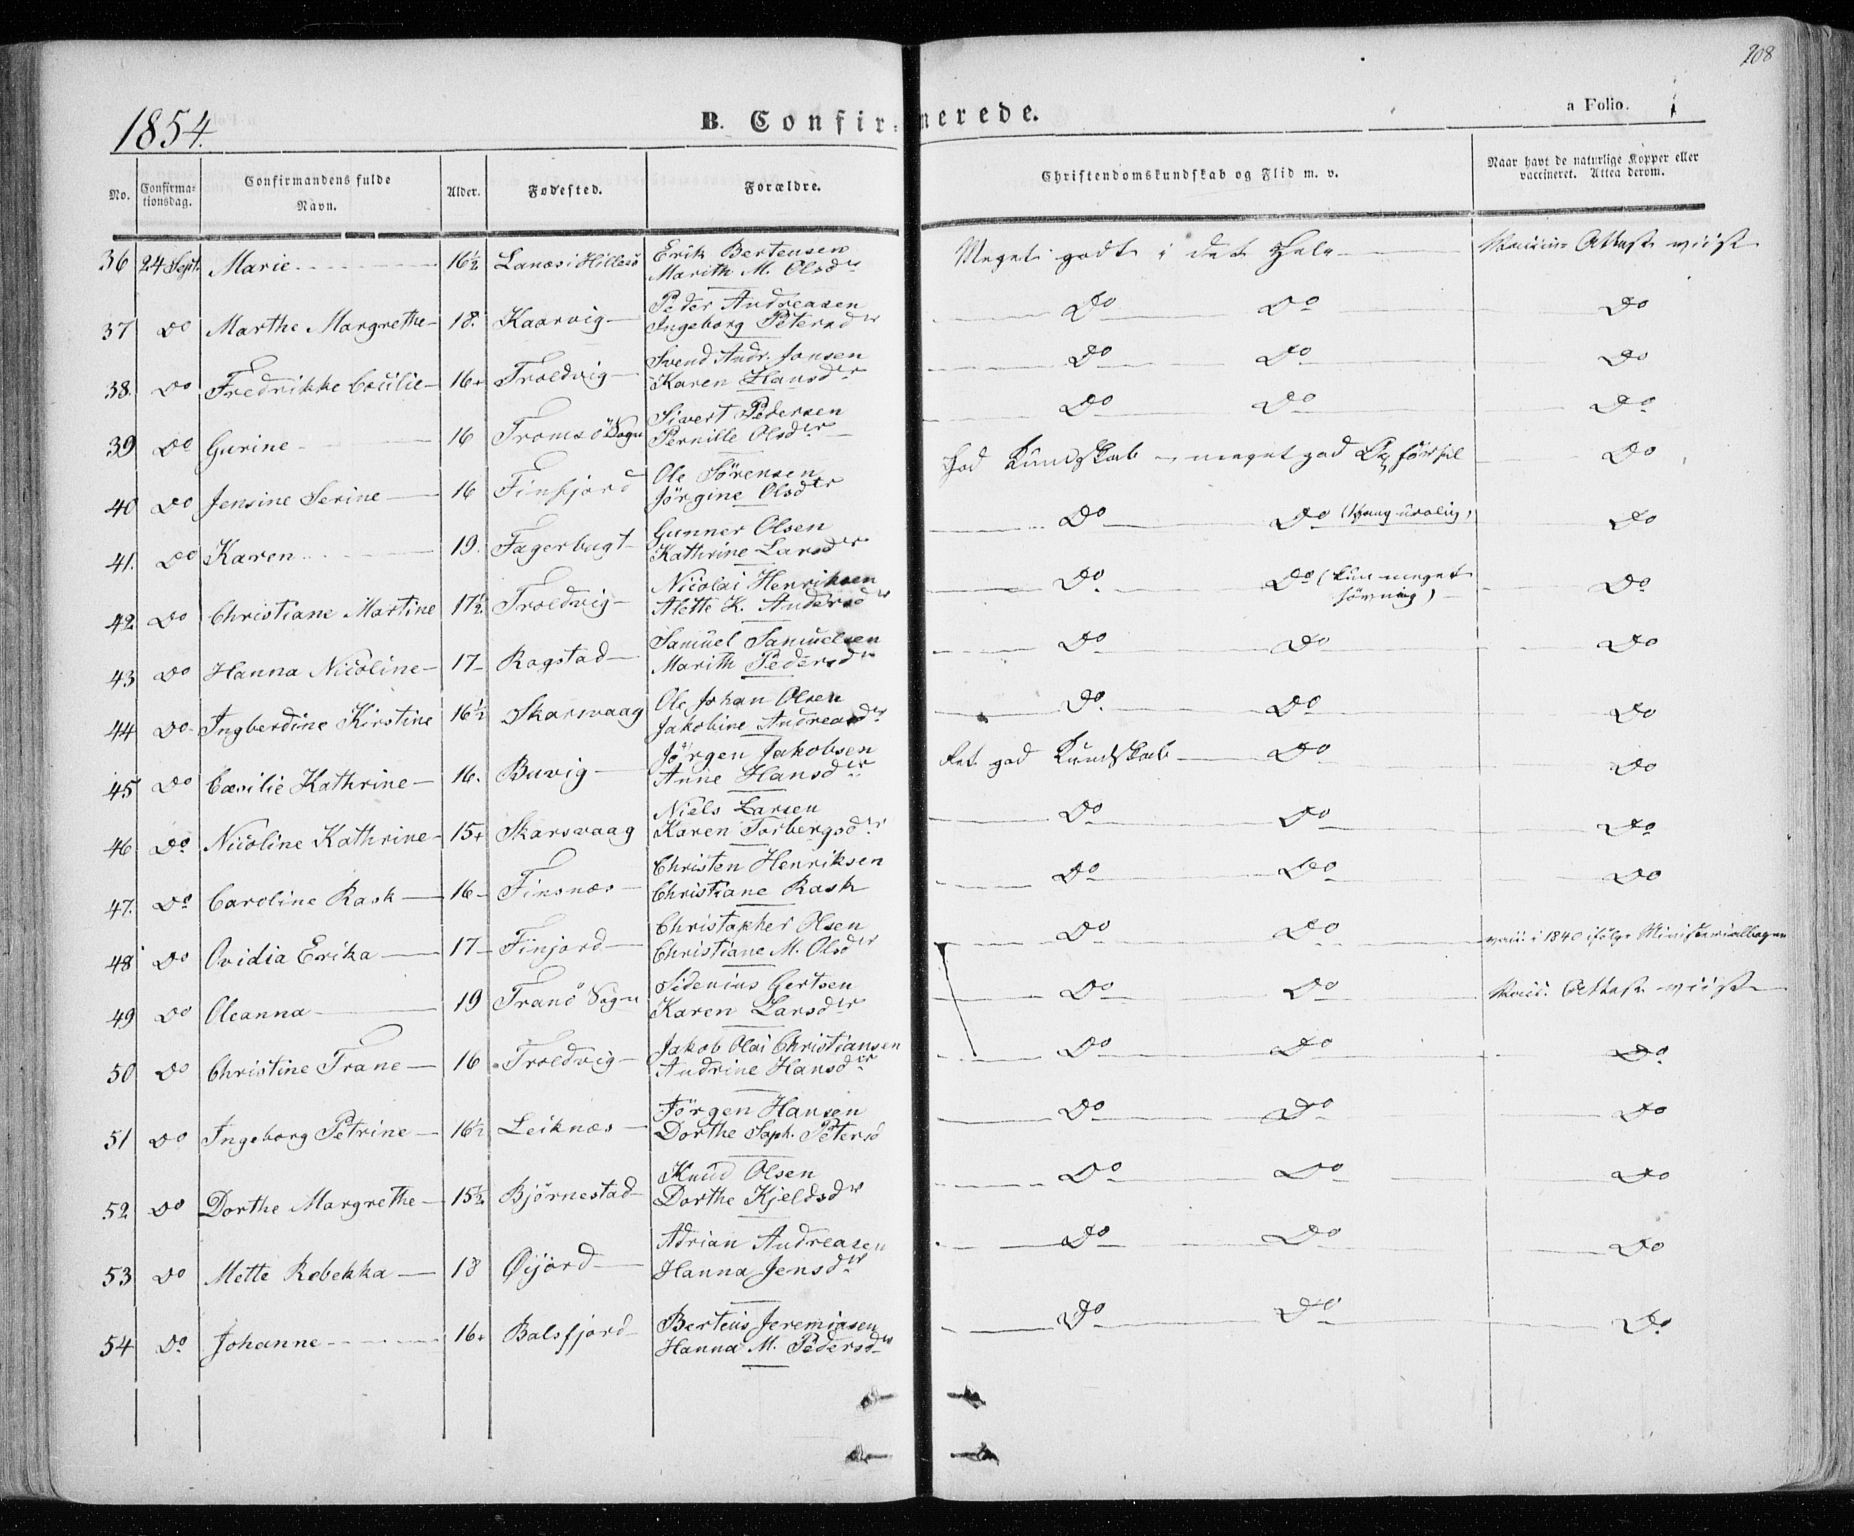 208
1854.
B. Confirmerede.
a Folio.
No. Confirmationsdag. Confirmandens fulde Navn. Alder. Fødested. Forældre. Christendomskundskab og Flid m. v. Naar havt de naturlige Kopper eller vaccineret. Attest derom.
36 24 Sept. Marie 16½ Lanæs i Hillesö Erik Bertensen Meget godt i det Hele Attest viist
Marith M. Olsdr
37 Do Marthe Margrethe 18. Kaarvig Peder Andreasen Do Do Do
Ingeborg Petersdr
38. Do Fredrikke Cecilie 16 Troldvig Svend Andr. Jonsen Do Do Do
Karen Hansdr
39 Do Gurine 16 Tromsö Sogn Sivert Pedersen Do Do Do
Pernille Olsdr
40 Do Jensine Serine 16 Finfjord Ole Sörensen God Kundskab meget god Opförsel Do
Jörgine Olsdr
41. Do Karen 19. Fagerbugt Gunner Olsen Do Do Do
Kathrine Larsdr
42 Do Christiane Martine 17½ Troldvig Nicolai Henriksen Do Do (kun meget Do
Alette K. Andersdr
43 Do Hanna Nicoline 17 Rogstad Samuel Samuelsen Do Do Do
Marith Pedersdr
44 Do Ingberdine Kirstine 16½ Skarsvaag Ole Johan Olsen Do Do Do
Jakobine Andreasdr
45 Do Cæcilie Kathrine 16. Buvig Jörgen Jakobsen Ret god Kundskab Do Do
Anne Hansdr
46 Do Nicoline Kathrine 15 Skarsvaag Niels Larsen Do Do Do
Karen Torbergsdr
47. Do Caroline Rask 16 Finsnæs Christen Henriksen Do Do Do
Christiane Rask
48 Do Ovidia Erika 17 Finjord Christopher Olsen Do Do vacc. i 1840 ifölge Ministerialbogen
Christiane M. Olsdr
49 Do Oleanna 19 Tranö Sogn Sidenius Gertsen Do Do Vacc. Attest viist
Karen Larsdr
50 Do Christine Trane 16 Troldvig Jakob Olai Christiansen Do Do Do
Andrine Hansdr
51 Do Ingeborg Petrine 16½ Leiknæs Jörgen Hansen Do Do Do
Dorthe Soph. Petersd
52 Do Dorthe Margrethe 15½ Bjørnestad Knud Olsen Do Do Do
Dorthe Kjeldsdr
53 Do Mette Rebekka 18 Øijord Adrian Andreasen Do Do Do
Hanna Jensdr
54 Do Johanne 16 Balsfjord Berteus Jeremiasen Do Do Do
Hanna M. Pedersdr